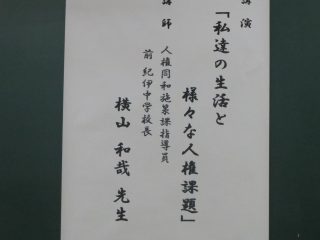 講演
「私達の生活と
様々な人権課題」
講師
人権同和施策課指導員
前 紀伊中学校長
横山 和哉 先生